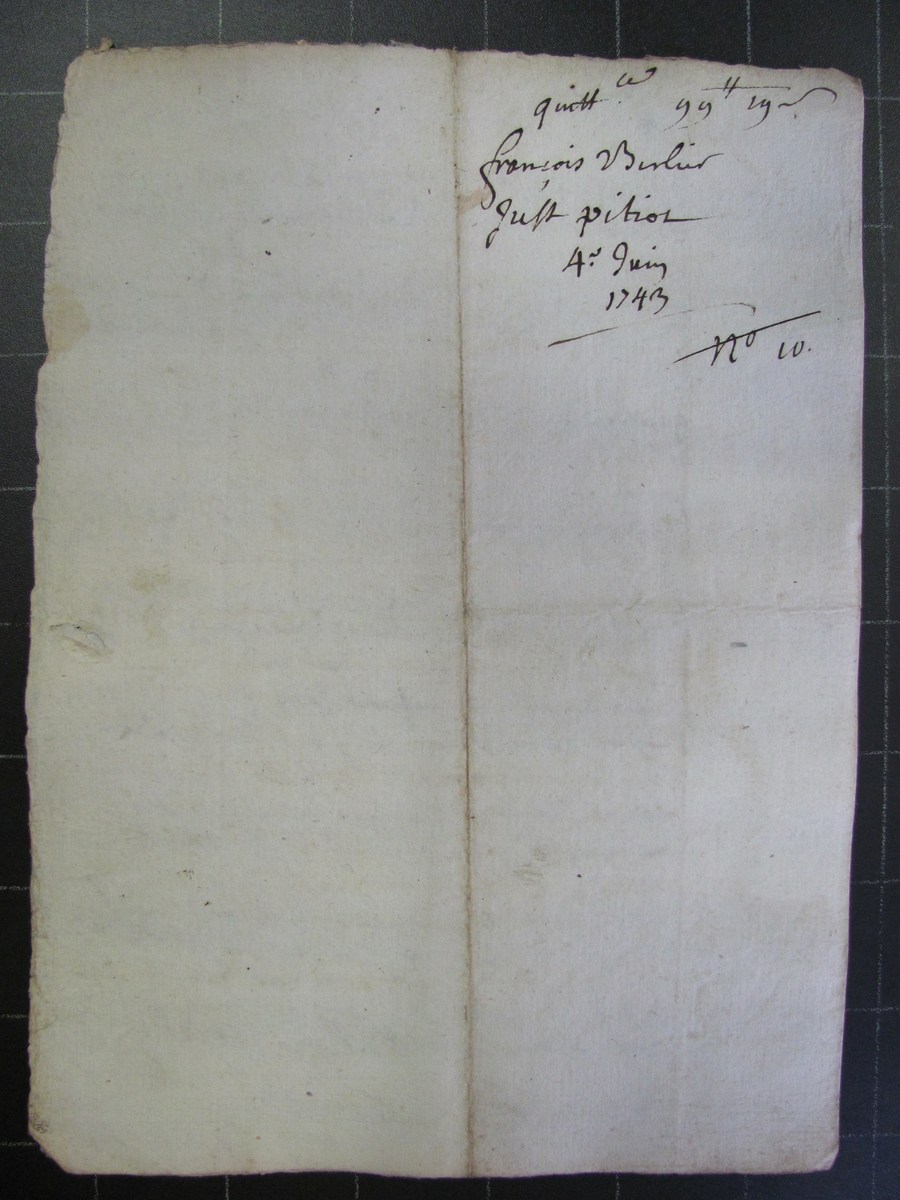 quitt.ce 99tt 19s
françois Berlier
Just pitiot
4e Juin
1743
No 10.